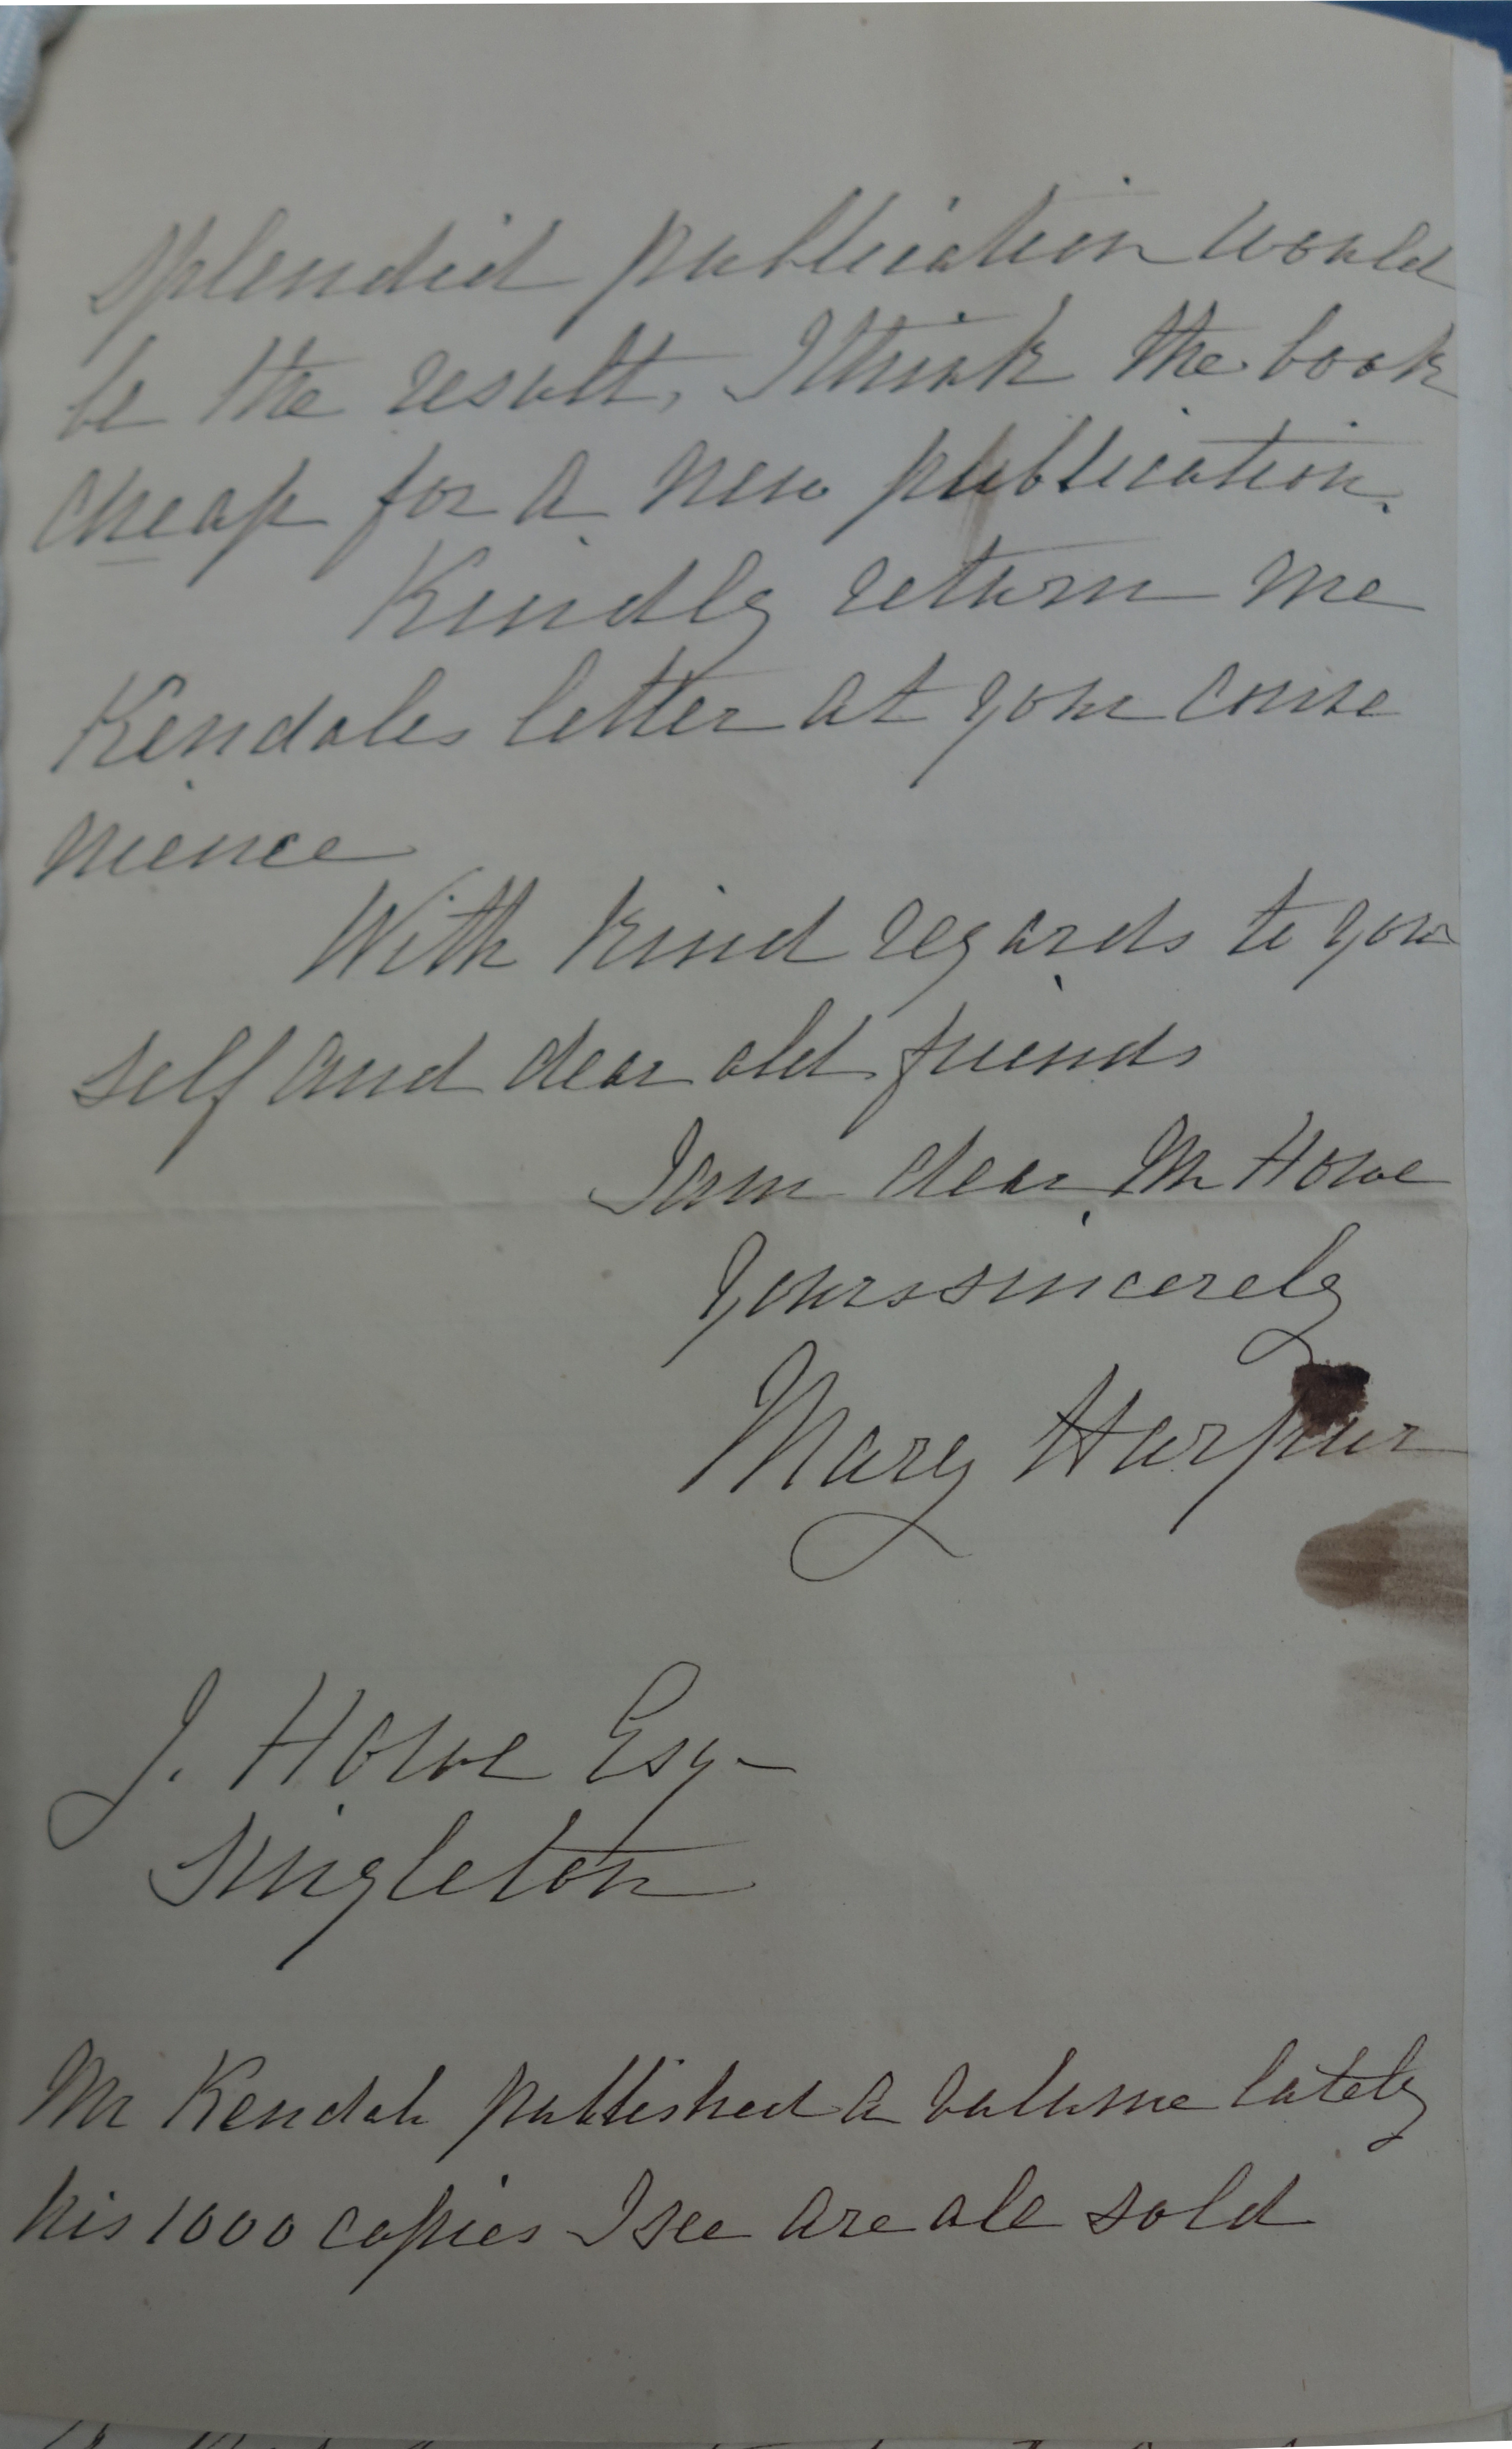 splendid publication would
be the result, I think the book
cheap for a new publication.
Kindly return me
Kendals letter at your conve
nience
With kind regards to your
self and dear old friends
I am dear Mr Howe
Yours sincerely
Mary Harpur
J. Howe Esq
Singleton
Mr Kendall published a volume lately
his 1000 copies I see are all sold